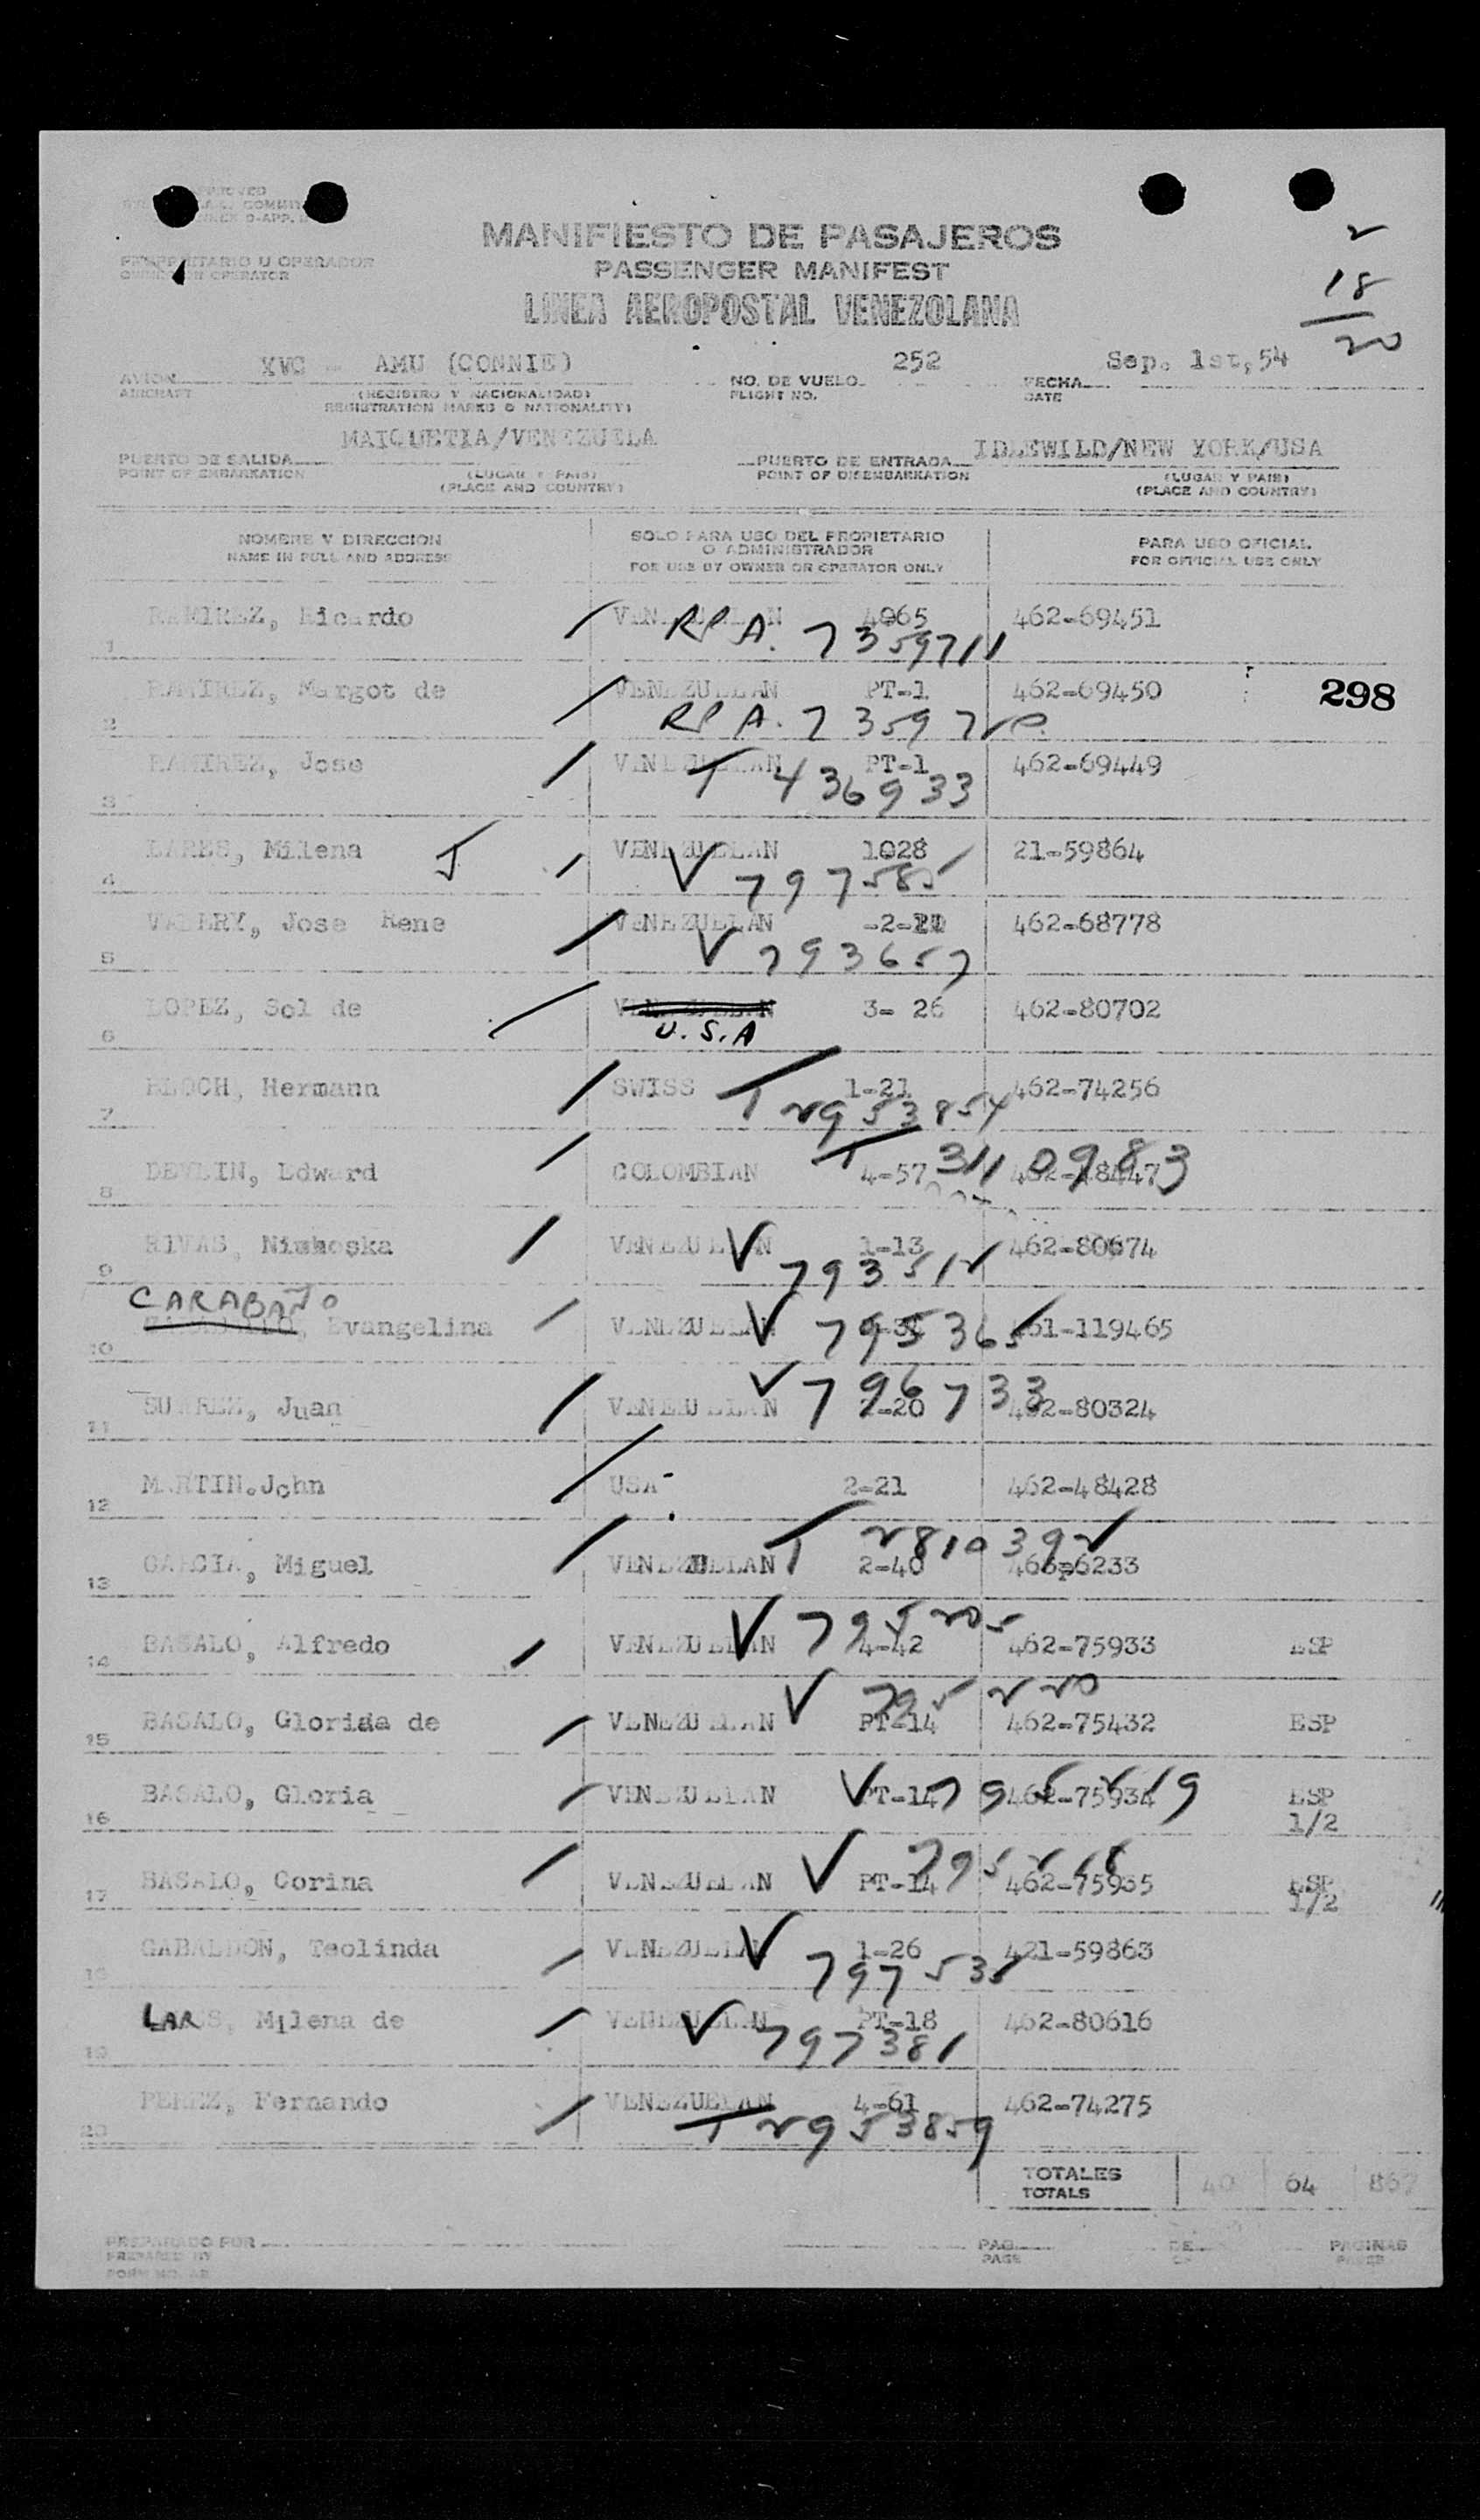 MANIFIESTO DE PASAJEROS
PASSENGER MANIFEST
LINEA AEROPOSTAL VENEZOLANA
2
18
20
PROPRIETARIO U OPERADOR
OPERATOR
AVION XVC - AMU (CONNIE) NO. DE VUELO 252 FECHA Sep. 1st,54
AIRCRAFT (REGISTRO Y NACIONALIDAD) FLIGHT NO. DATE
REGISTRATION MARKS & NATIONALITY)
PUERTO DE SALIDA MAIQUETIA/VENEZUELA PUERTO DE ENTRADA IDLEWILD/NEW YORK/USA
POINT OF EMBARKATION (LUGAR Y PAIS) POINT OF DISEMBARKATION (LUGAR Y PAIS)
(PLACE AND COUNTRY) (PLACE AND COUNTRY)
NOMBRE Y DIRECCION SOLO PARA USO DEL PROPIETARIO PARA USO OFICIAL
O ADMINISTRADOR
NAME IN FULL AND ADDRESS FOR USE BY OWNER OR OPERATOR ONLY FOR OFFICIAL USE ONLY
1 RAMIREZ, Ricardo VENEZUELAN 4065 462-69451
RPA. 7359711
2 RAMIREZ, Margot de VENEZUELAN PT-1 462-69450 298
RPA. 735972
3 RAMIREZ, Jose VENEZUELAN PT-1 462-69449
T 436933
4 LARES, Milena J VENEZUELAN 1028 21-59864
V 797585
5 VALERY, Jose Rene VENEZUELAN 462-68778
V 793657
6 LOPEZ, Sol de VENEZUELAN 3- 26 462-80702
U.S.A
7 BLOCH, Hermann SWISS 1-21 462-74256
T 2953854
T 3110983
8 DEVLIN, Edward COLOMBIAN 4-57
9 RIVAS, VENEZUELAN 1-13 462-80674
V 793512
CARABAÑO
10 Evangelina VENEZUELAN V 795365 461-119465
V 796733
11 SUAREZ, Juan VENEZUELAN 2-20 462-80324
12 MARTIN.John USA 2-21 462-48428
T 2810392
13 GARCIA, Miguel VENEZUELAN 2-40
V 795205
14 BASALO, Alfredo VENEZUELAN 4-42 462-75933 ESP
V 795220
15 BASALO, de VENEZUELAN PT-14 462-75432 ESP
16 BASALO, Gloria VENEZUELAN PT-14 V 795219 462-75934 ESP
1/2
V 795218
17 BASALO, Corina VENEZUELAN PT-14 462-75935 ESP
1/2
18 GABALDON, Teolinda VENEZUELAN 1-26 421-59863
V
19 LAR Milena de VENEZUELAN PT-18 462-80616
V 797381
20 PEREZ, Fernando VENEZUELAN 4-61 462-74275
T 2953859
TOTALES 40 64 867
TOTALS
PREPARADO POR PAG. DE PAGINAS
PREPARED BY PAGE OF PAGES